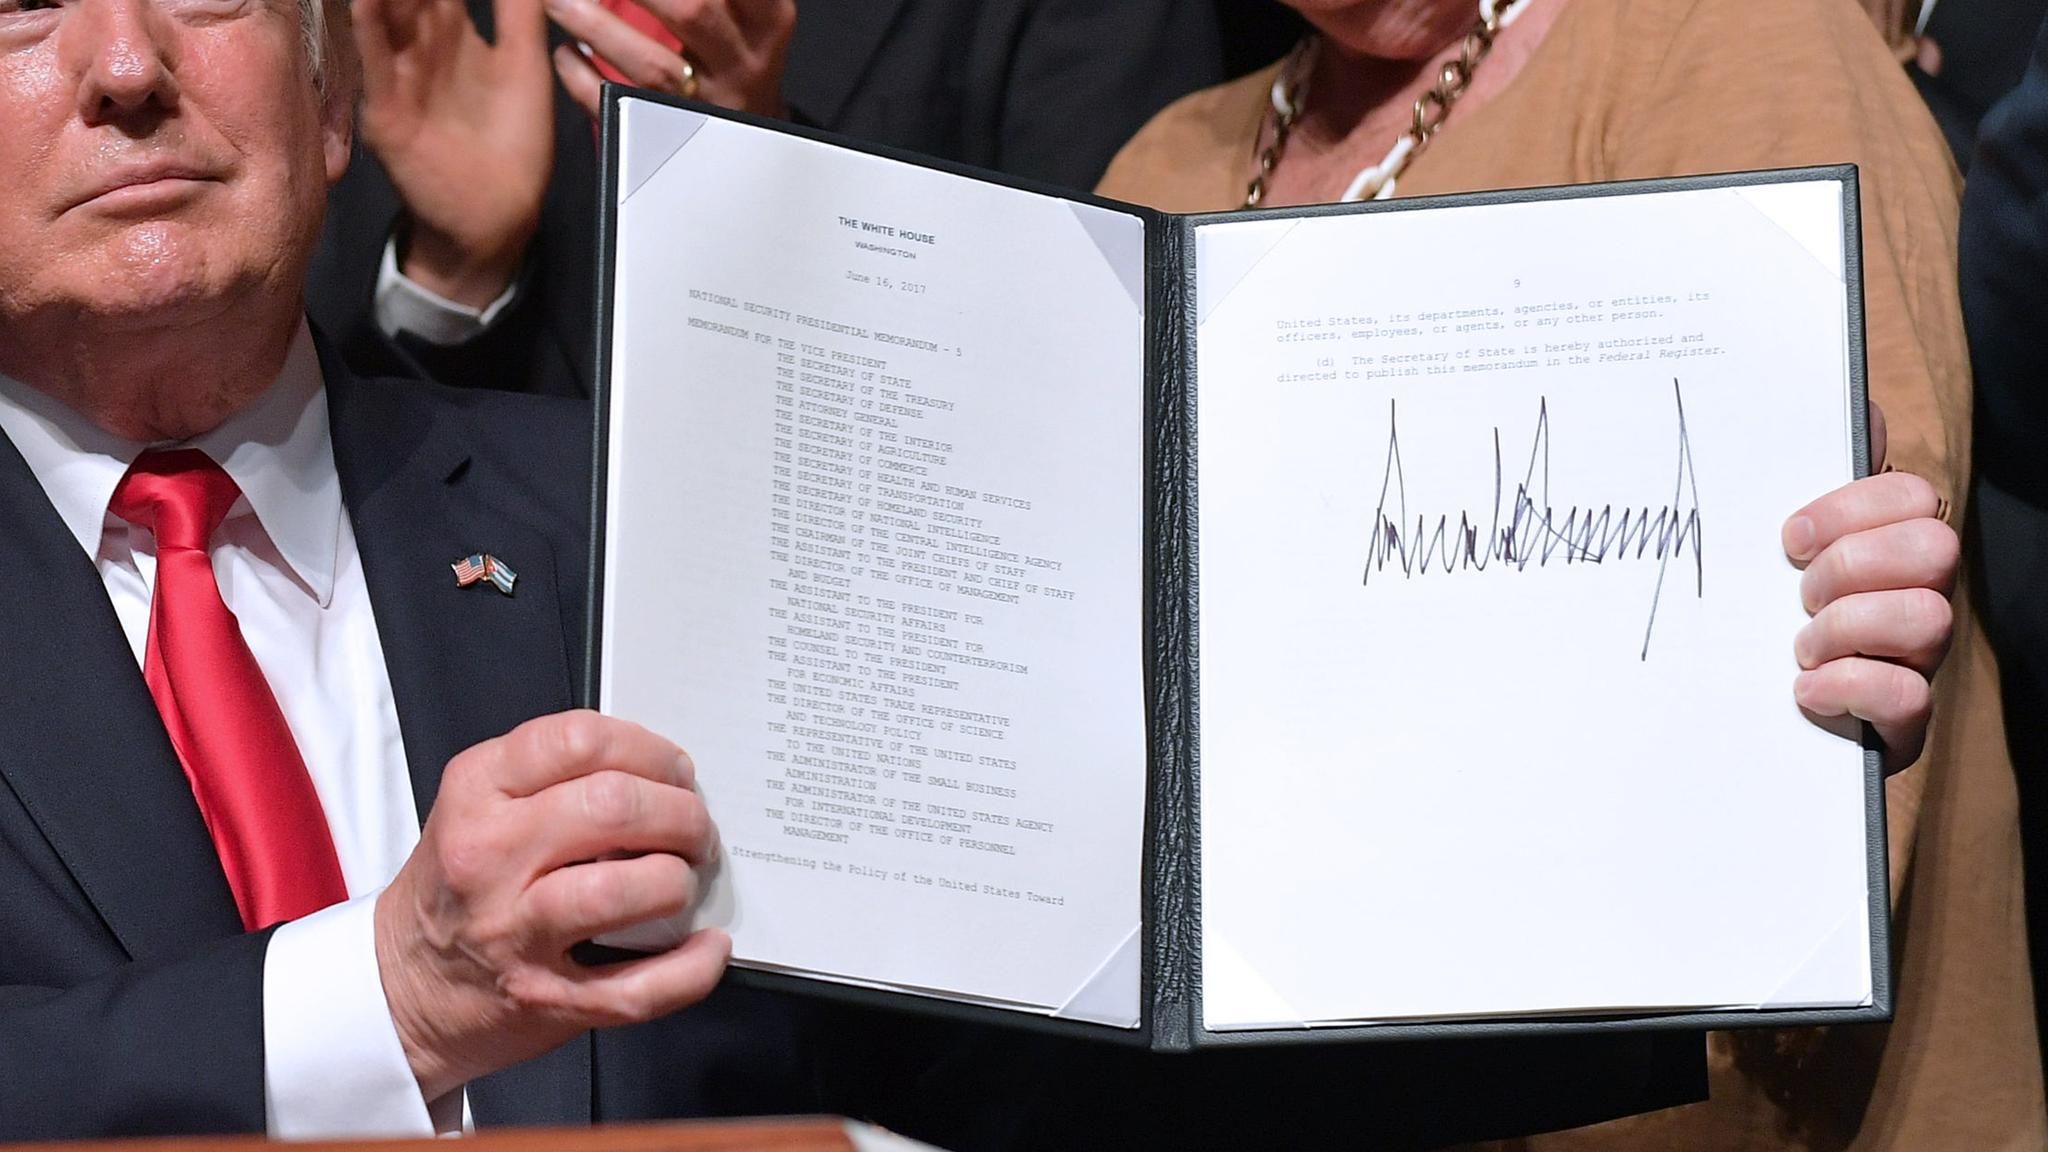 THE WHITE HOUSE
WASHINGTON
June 16, 2017
NATIONAL SECURITY PRESIDENTIAL MEMORANDUM - 5
MEMORANDUM FOR THE VICE PRESIDENT
THE SECRETARY OF STATE
THE SECRETARY OF THE TREASURY
THE SECRETARY OF DEFENSE
THE ATTORNEY GENERAL
THE SECRETARY OF THE INTERIOR
THE SECRETARY OF AGRICULTURE
THE SECRETARY OF COMMERCE
THE SECRETARY OF HEALTH AND HUMAN SERVICES
THE SECRETARY OF TRANSPORTATION
THE SECRETARY OF HOMELAND SECURITY
THE DIRECTOR OF NATIONAL INTELLIGENCE
THE DIRECTOR OF THE CENTRAL INTELLIGENCE AGENCY
THE CHAIRMAN OF THE JOINT CHIEFS OF STAFF
THE ASSISTANT TO THE PRESIDENT AND CHIEF OF STAFF
THE DIRECTOR OF THE OFFICE OF MANAGEMENT
AND BUDGET
THE ASSISTANT TO THE PRESIDENT FOR
NATIONAL SECURITY AFFAIRS
THE ASSISTANT TO THE PRESIDENT FOR
HOMELAND SECURITY AND COUNTERTERRORISM
THE COUNSEL TO THE PRESIDENT
THE ASSISTANT TO THE PRESIDENT
FOR ECONOMIC AFFAIRS
THE UNITED STATES TRADE REPRESENTATIVE
THE DIRECTOR OF THE OFFICE OF SCIENCE
AND TECHNOLOGY POLICY
THE REPRESENTATIVE OF THE UNITED STATES
TO THE UNITED NATIONS
THE ADMINISTRATOR OF THE SMALL BUSINESS
ADMINISTRATION
THE ADMINISTRATOR OF THE UNITED STATES AGENCY
FOR INTERNATIONAL DEVELOPMENT
THE DIRECTOR OF THE OFFICE OF PERSONNEL
MANAGEMENT
Strengthening the Policy of the United States Toward
9
United States, its departments, agencies, or entities, its
officers, employees, or agents, or any other person.
(d) The Secretary of State is hereby authorized and
directed to publish this memorandum in the Federal Register.